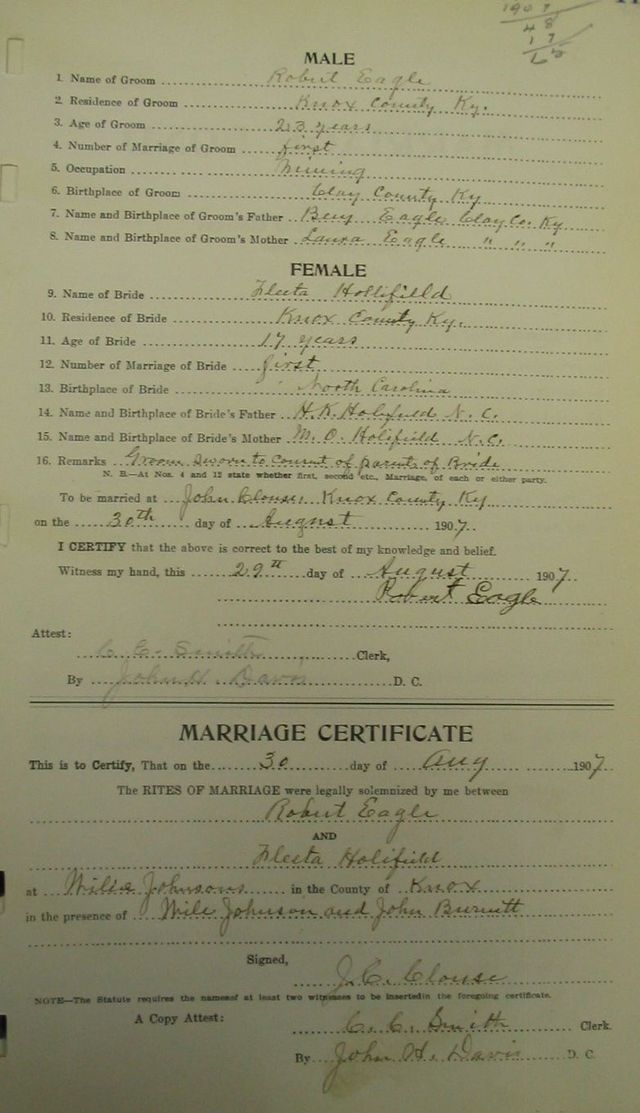 1907
48
17
MALE
1. Name of Groom Robert Eagle
2. Residence of Groom Knox County Ky.
3. Age of Groom 23 years
4. Number of Marriage of Groom first
5. Occupation Mining
6. Birthplace of Groom Clay County Ky
7. Name and Birthplace of Groom's Father Benj Eagle Clay Co. Ky
8. Name and Birthplace of Groom's Mother Laura Eagle " " "
FEMALE
9. Name of Bride Flecta Hollifield
10. Residence of Bride Knox County Ky.
11. Age of Bride 17 years
12. Number of Marriage of Bride first
13. Birthplace of Bride North Carolina
14. Name and Birthplace of Bride's Father H. K. Holifield N. C.
15. Name and Birthplace of Bride's Mother M. O. Holifield N. C.
16. Remarks Groom sworn to consent of parents of Bride
N. B.—At Nos. 4 and 12 state whether first, second etc., Marriage, of each or either party.
To be married at John Clouses Knox County Ky
on the 30th day of August 1907.
I CERTIFY that the above is correct to the best of my knowledge and belief.
Witness my hand, this 29th day of August 1907.
Robert Eagle
Attest:
C. C. Smith Clerk,
By John H. Davis D. C.
MARRIAGE CERTIFICATE
This is to Certify, That on the 30 day of Aug 1907
The RITES OF MARRIAGE were legally solemnized by me between
Robert Eagle
AND
Flecta Holifield
at Wills Johnsons in the County of Knox
in the presence of Wile Johnson and John Burnett
Signed,
J. C. Clouse
NOTE—The Statute requires the names of at least two witnesses to be inserted in the foregoing certificate.
A Copy Attest: C. C. Smith Clerk.
By John H. Davis D. C.